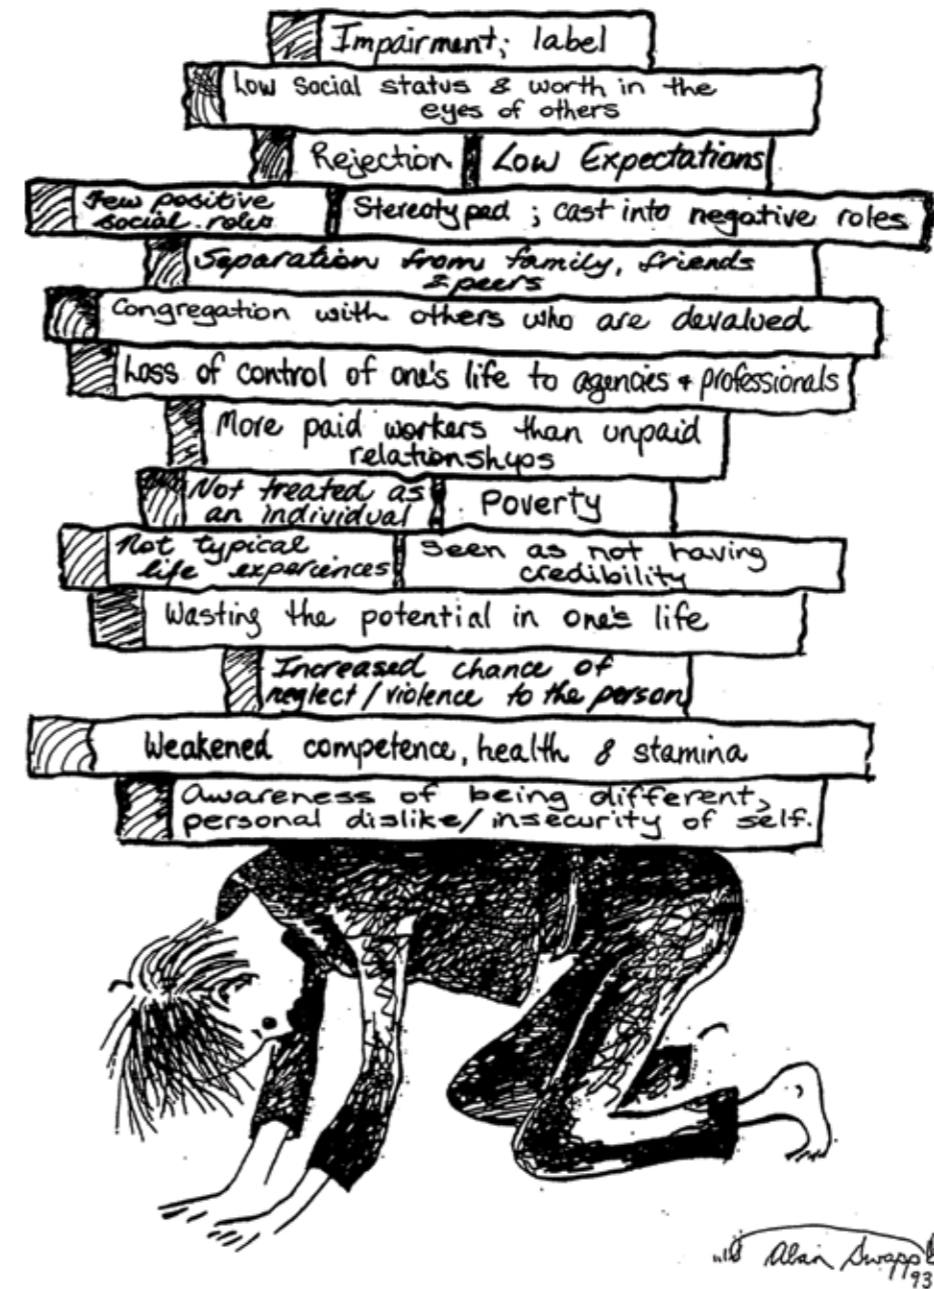 Impairment; label
Low Social status & worth in the
eyes of others
Rejection
Low Expectations
Few positive
social roles
Stereotyped; cast into negative roles
Separation from family, friends
& peers
Congregation with others who are devalued
Loss of control of one's life to agencies + professionals
More paid workers than unpaid
relationships
Not treated as
an individual
Poverty
Not typical
life experiences
Seen as not having
credibility
Wasting the potential in one's life
Increased chance of
neglect/violence to the person
Weakened competence, health & stamina
Awareness of being different,
personal dislike/insecurity of self.
Alain
93